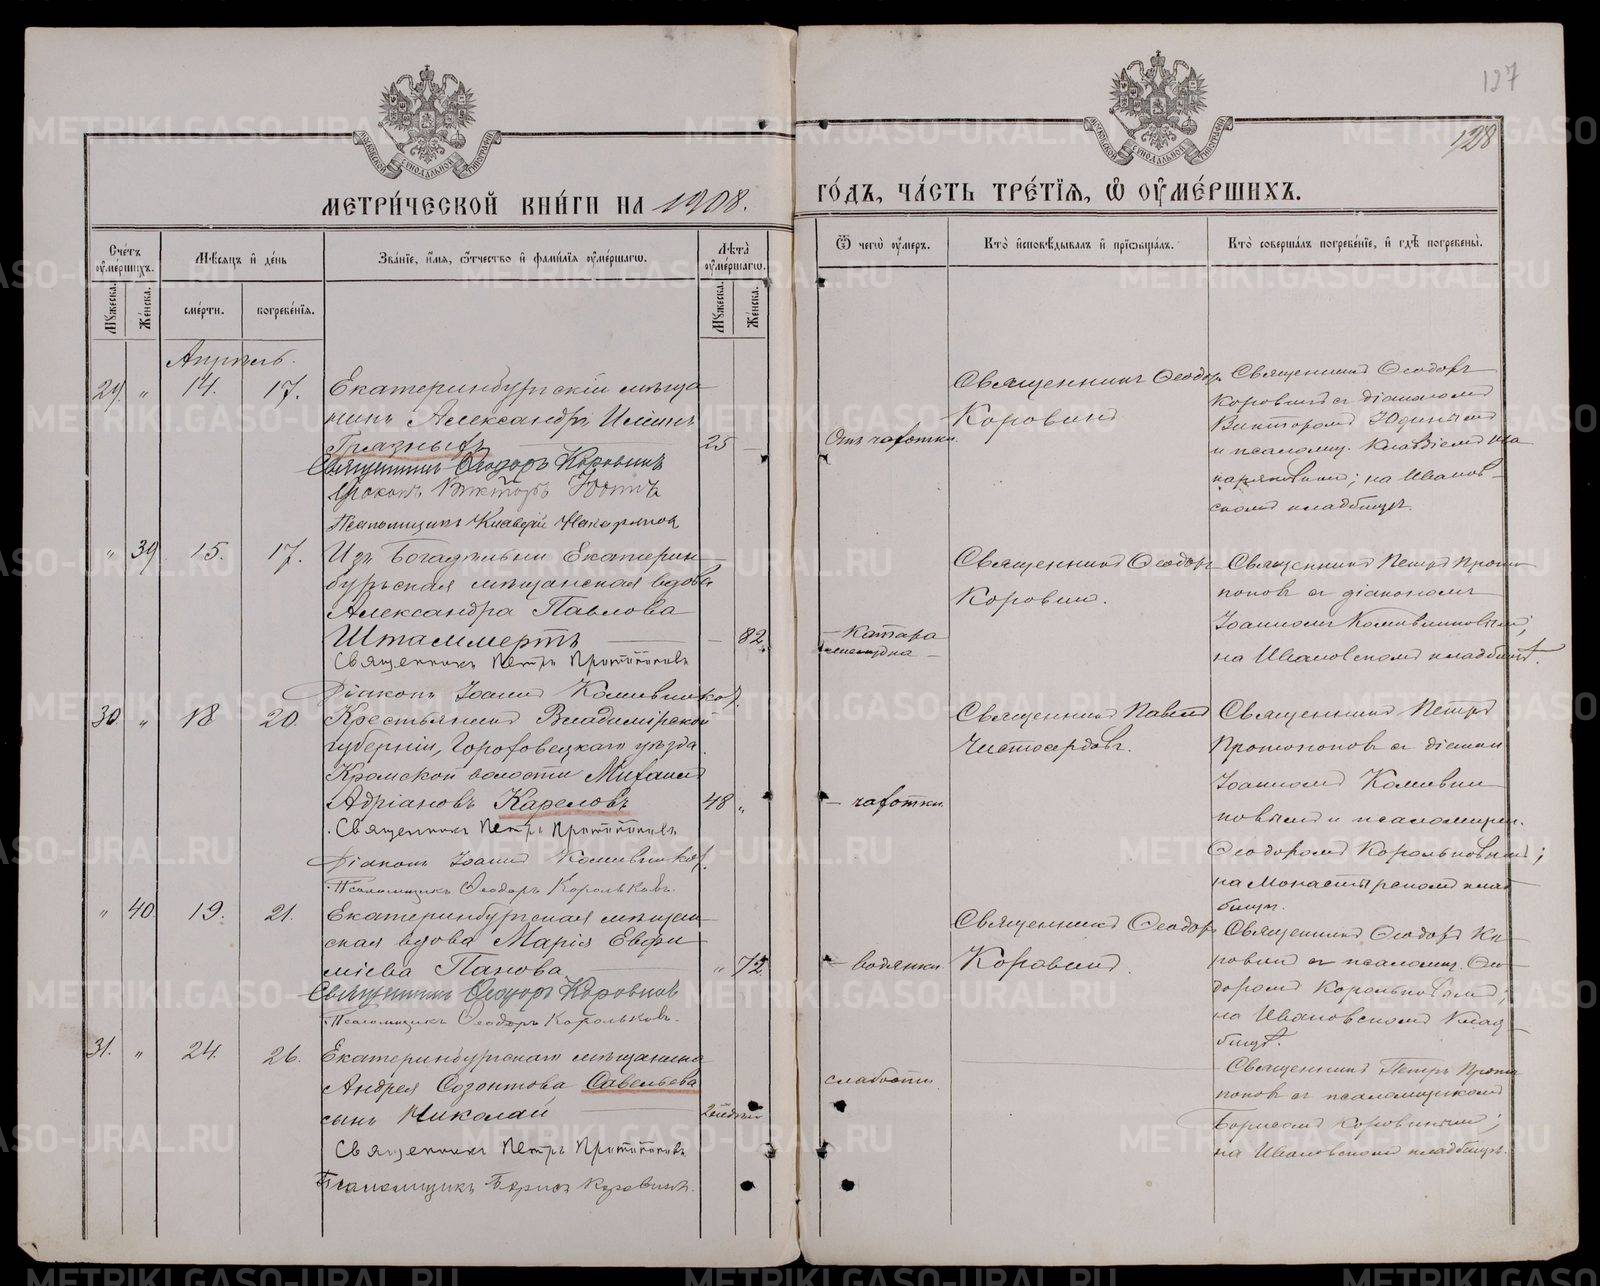 127
128
МЕТРИ́ЧЕСКОЙ КНИ́ГИ НА 1908.
ГО́ДЪ, ЧА́СТЬ ТРЕ́ТІЯ, Ѡ҆ ОУ҆МЕ́РШИХЪ.
Сче́тъ оу҆ме́ршихъ.
Мѣ́сяцъ и҆ де́нь
Зва́нїе, и҆́мя, ѻ҆́тчество и҆ фами́лїя оу҆ме́ршагѡ.
Лѣ́та оу҆ме́ршагѡ.
Ѿ чегѡ̀ оу҆́меръ.
Кто̀ и҆сповѣ́дывалъ и҆ прїѡбща́лъ.
Кто̀ соверша́лъ погребе́нїе, и҆ гдѣ̀ погребены̀.
Му́жеска.
Же́нска.
сме́рти.
погребе́нїя.
Му́жеска.
Же́нска.
Апрѣль.
29 " 14. 17.
Екатеринбургскій мѣща-
нинъ Александръ Ильинъ
Глазныхъ
25
Священникъ Ѳеодоръ Коровинъ
Діаконъ Викторъ Юдинъ
Псаломщикъ Клавдій
Отъ чахотки.
Священникъ Ѳеодоръ
Коровинъ
Священникъ Ѳеодоръ
Коровинъ съ діакономъ
Викторомъ Юдинымъ
и псаломщ. Клавдіемъ
на Иванов-
скомъ кладбищѣ.
" 39 15. 17.
Изъ Богадѣльни Екатерин-
бургская мѣщанская вдова
Александра Павлова
Штаммертъ
82
Священникъ Петръ Протопоповъ
Діаконъ Іоаннъ
катара
желудка
Священникъ Ѳеодоръ
Коровинъ.
Священникъ Петръ Прото-
поповъ съ діакономъ
Іоанномъ
на Ивановскомъ кладбищѣ.
30 " 18 20.
Крестьянинъ Владимірской
губерніи, Гороховецкаго уѣзда
волости Михаилъ
Адріановъ Кареловъ
48 "
Священникъ Петръ Протопоповъ
Діаконъ Іоаннъ
Псаломщикъ Ѳеодоръ Корольковъ.
чахотки.
Священникъ Павелъ
Чистосердовъ.
Священникъ Петръ
Протопоповъ съ діакон.
Іоанномъ
и псаломщик.
Ѳеодоромъ Корольковымъ;
на Монастырскомъ клад-
бищѣ.
" 40. 19. 21.
Екатеринбургская мѣщан-
ская вдова Марія Евфи-
міева Панова
" 72
Священникъ Ѳеодоръ Коровинъ
Псаломщикъ Ѳеодоръ Корольковъ.
водянки.
Священникъ Ѳеодоръ
Коровинъ.
Священникъ Ѳеодоръ Ко-
ровинъ съ псаломщ. Ѳео-
доромъ Корольковымъ;
на Ивановскомъ клад-
бищѣ.
31. " 24. 26.
Екатеринбургскаго мѣщанина
Андрея Созонтова Савельева
сынъ Николай
Священникъ Петръ Протопоповъ
Псаломщикъ Борисъ Коровинъ.
слабости.
Священникъ Петръ Прото-
поповъ съ псаломщикомъ
Борисомъ Коровинымъ;
на Ивановскомъ кладбищѣ.
METRIKI.GASO-URAL.RU